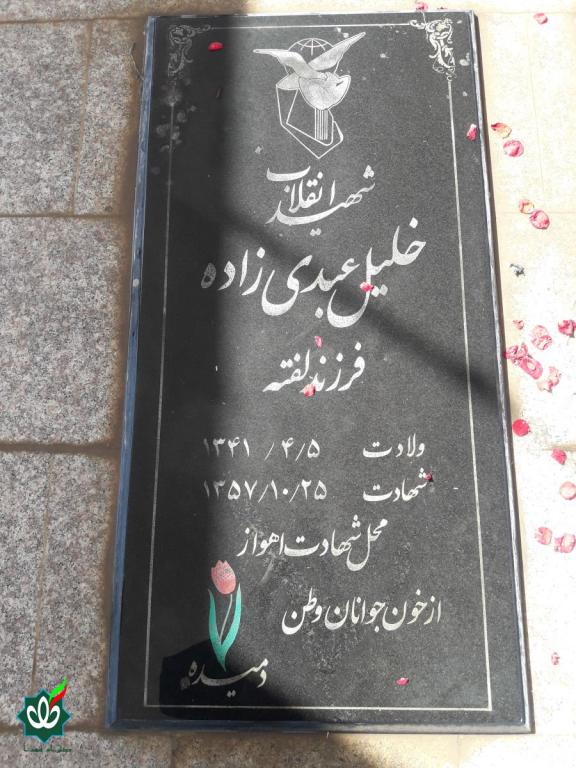 شهید انقلاب
خلیل عبدی زاده
فرزند لفته
ولادت ۱۳۴۱/۴/۵
شهادت ۱۳۵۷/۱۰/۲۵
محل شهادت اهواز
از خون جوانان وطن
دمیده